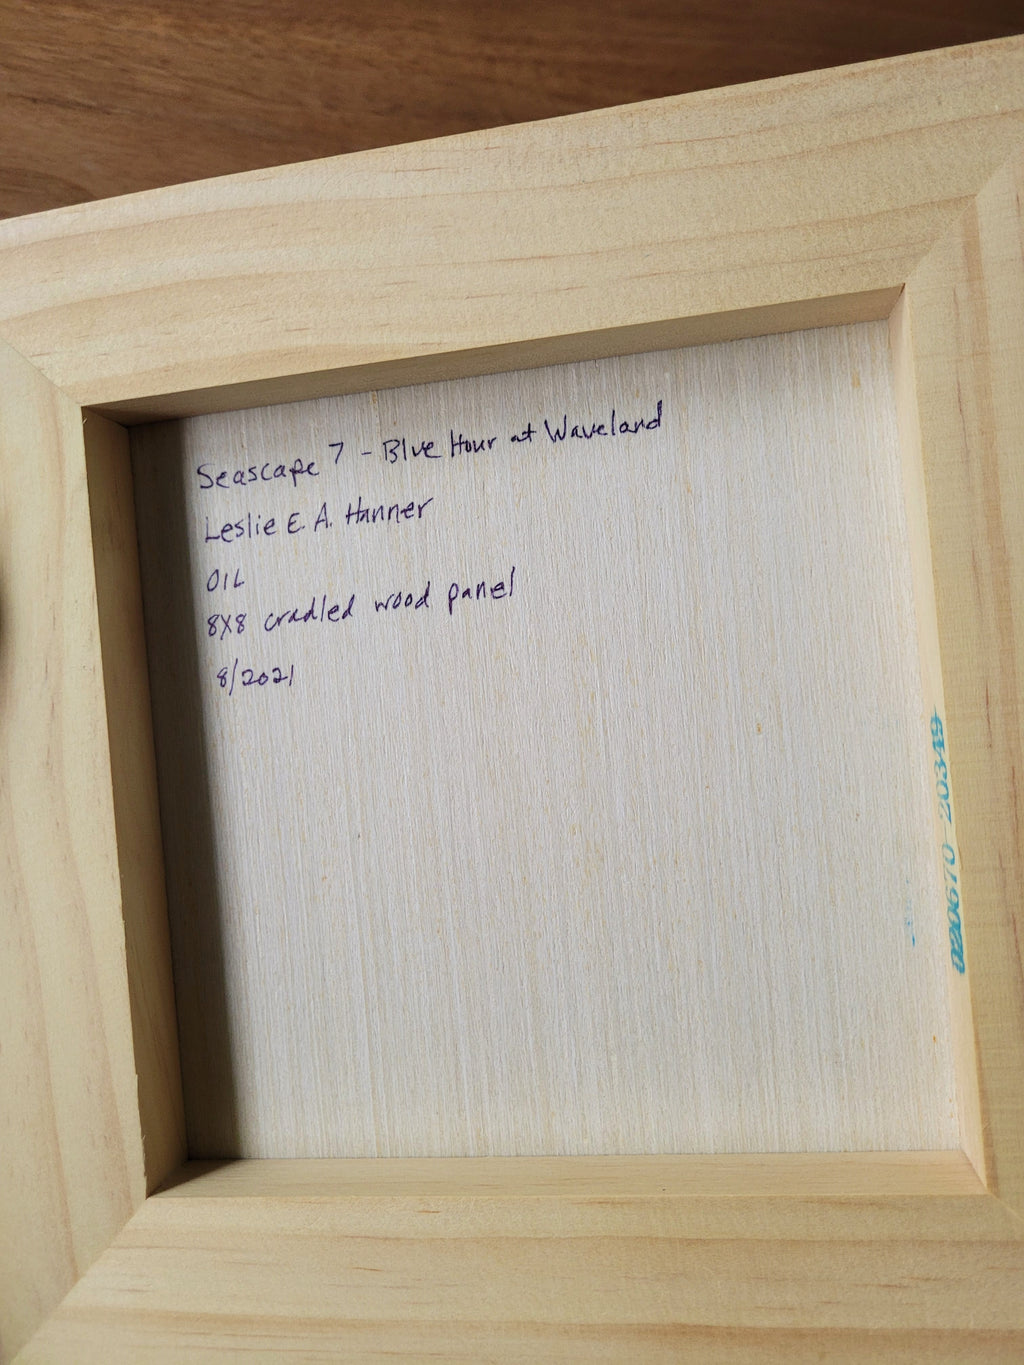 Seascape 7 - Blue Hour at Waveland
Leslie E. A. Hanner
OIL
8X8 cradled wood panel
8/2021
020670 20349